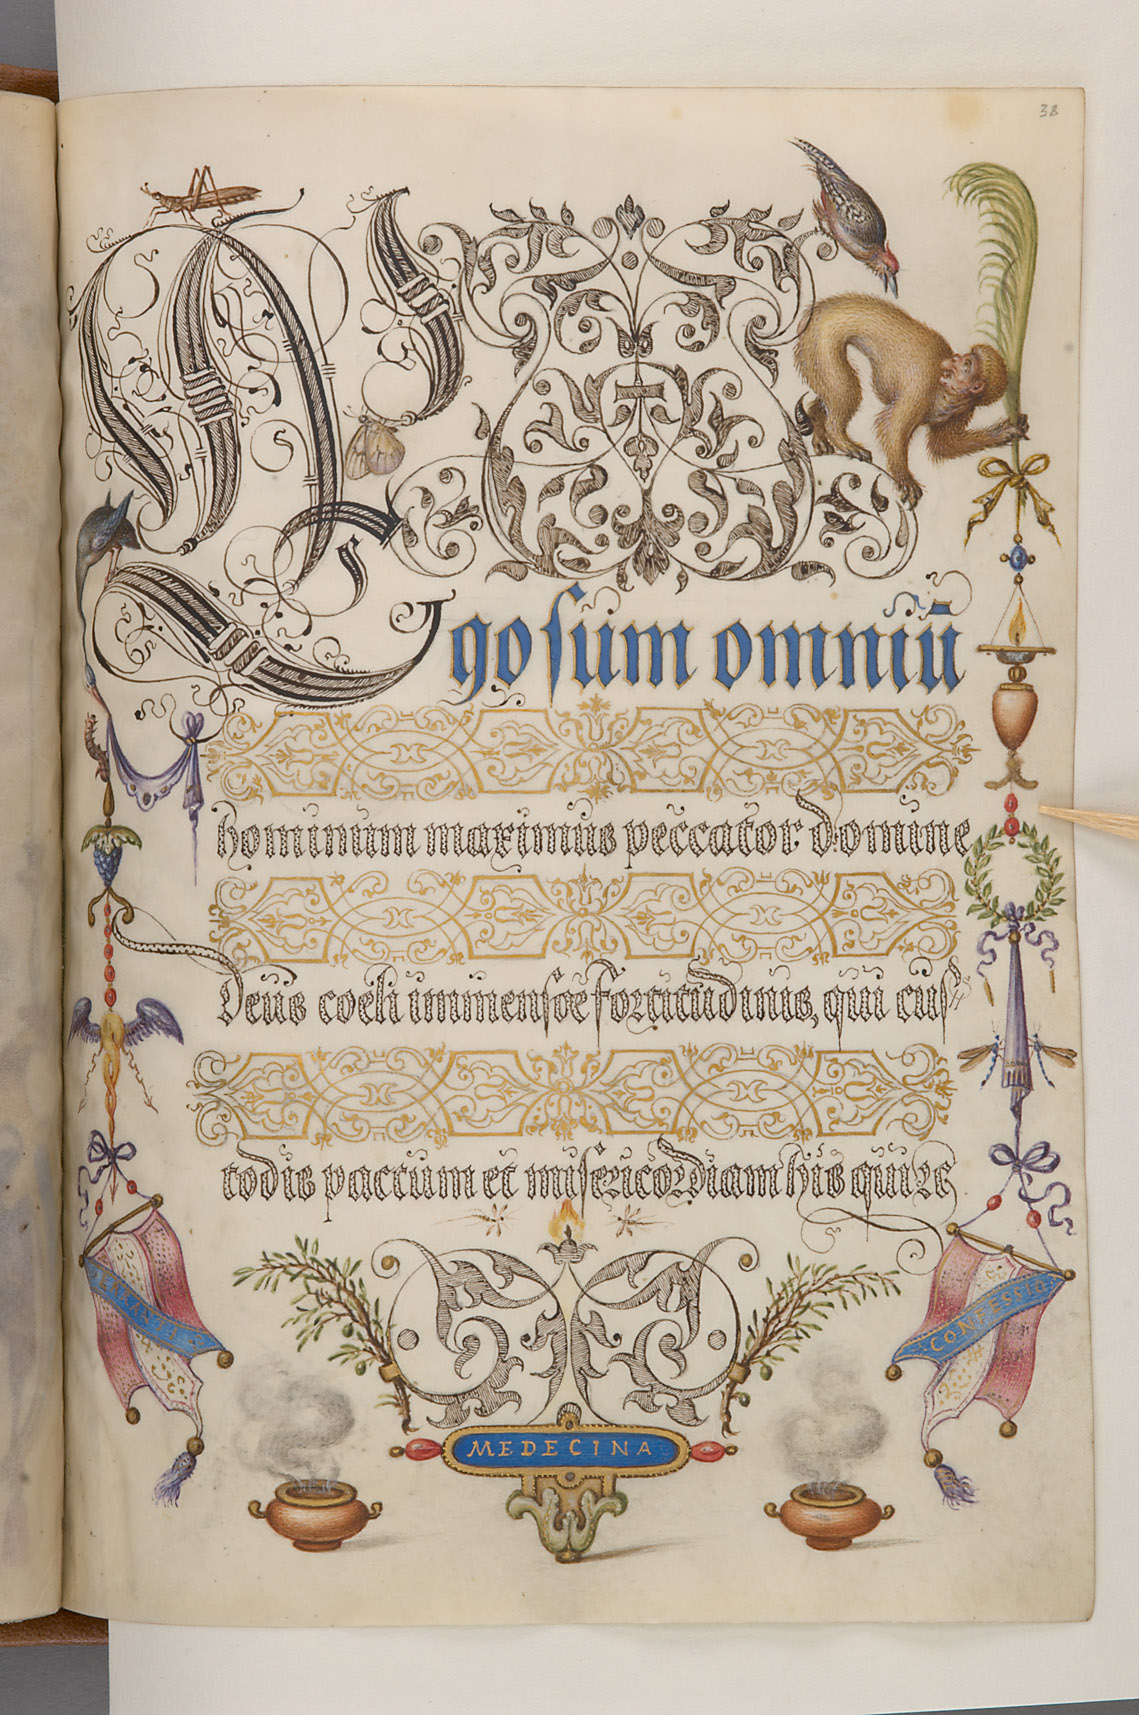 38
Ego sum omniū
hominum maximus peccator domine
Deus coeli immensae fortitudinis, qui cus⸗
todis pactum et misericordiam his qui te
CONFESSIO
MEDECINA